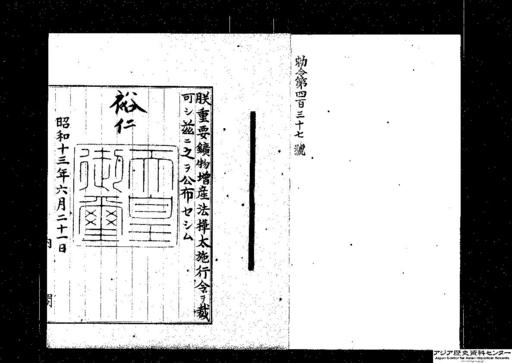 勅令第四百三十七號
朕重要鑛物増産法樺太施行令ヲ裁
可シ茲ニ之ヲ公布セシム
裕仁
天皇御璽
昭和十三年六月二十一日
内
閣
アジア歴史資料センター
Japan Center for Asian Historical Records